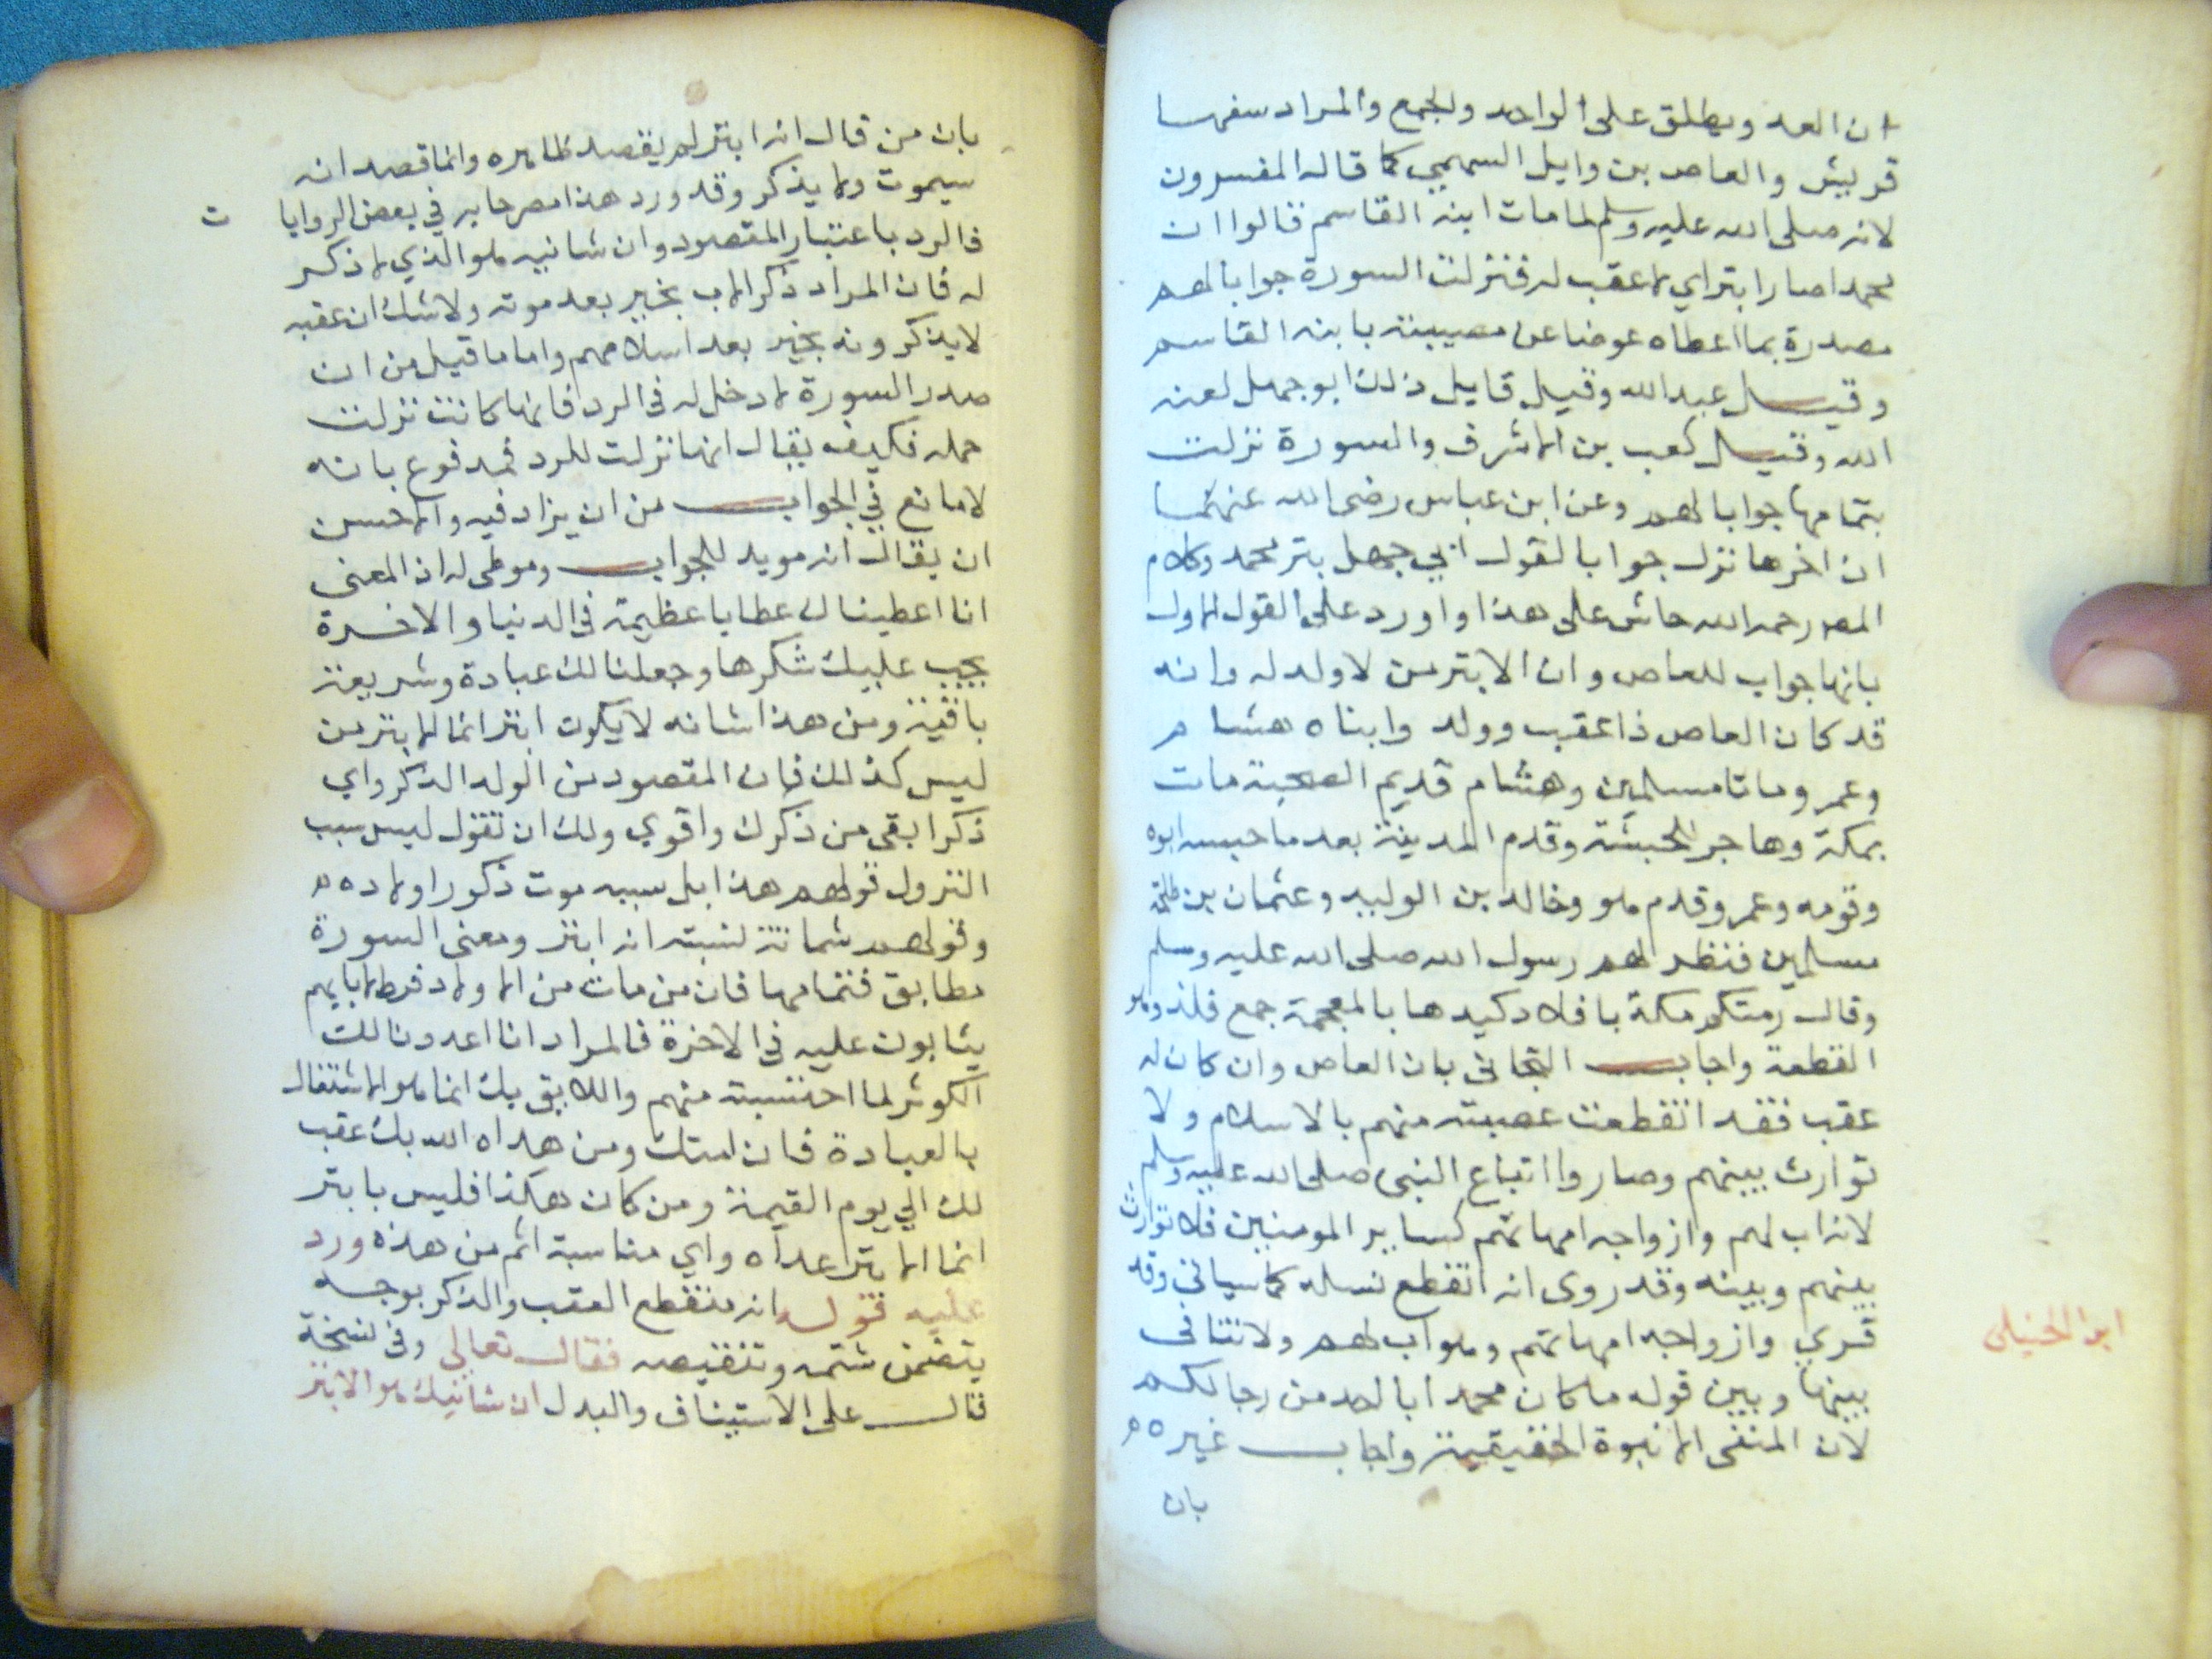 ان العدو يطلق على الواحد والجمع والمراد سفها
قريش والعاص بن وايل السهمي كما قاله المفسرون
لانه صلى الله عليه وسلم لما مات ابنه القاسم قالوا ان
محمدا صار ابتر اي لا عقب له فنزلت السورة جوابا لهم
مصدرة بما اعطاه عوضا عن مصيبته بابنه القاسم
وقيل عبد الله وقيل قايل ذلك ابو جهل لعنه
الله وقيل كعب بن الاشرف والسورة نزلت
بتمامها جوابا لهم وعن ابن عباس رضى الله عنهما
ان اخرها نزل جوابا لقول ابي جهل بتر محمد وكلام
المص رحمه الله ماش على هذا واورد على القول الاول
بانها جواب للعاص وان الابتر من لا ولد له وانه
قد كان العاص ذا عقب وولد وابناه هشام
وعمرو ماتا مسلمين وهشام قديم الصحبة مات
بمكة وهاجر للحبشة وقدم المدينة بعد ما حبسه ابوه
وقومه وعمرو قدم هو وخالد بن الوليد وعثمان بن طلحة
مسلمين فنظر لهم رسول الله صلى الله عليه وسلم
وقال رمتكم مكة بافلاذ كبدها بالمعجمة جمع فلذ وهو
القطعة واجاب بان العاص وان كان له
عقب فقد انقطعت عصبته منهم بالاسلام ولا
توارث بينهم وصاروا اتباع النبى صلى الله عليه وسلم
لانه اب لهم وازواجه امهاتهم كساير المومنين فلا توارث
بينهم وبينه وقد روى انه انقطع نسله كما سياتي وقد
قري وازواجه امهاتهم وهو اب لهم ولا تنافى
بينها وبين قوله ما كان محمد ابا احد من رجالكم
لان المنفى الابوة الحقيقية واجاب غيره
بان
ابو الحنبلى
بان من قال انه ابتر لم يقصد ظاهره وانما قصد انه
سيموت ولا يذكر وقد ورد هذا مصرحا به في بعض الروايات
فالرد باعتبار المقصود وان شانيه هو الذي لا ذكر
له فان المراد ذكر الاب بخير بعد موته ولا شك ان عقبه
لا يذكرونه بخير بعد اسلامهم واما ما قيل من ان
صدر السورة لا دخل له فى الرد فانها كانت نزلت
جمله فكيف يقال انها نزلت للرد فمدفوع بانه
لا مانع في الجواب من ان يزاد فيه والاحسن
ان يقال انه مويد للجواب وموطى له اذ المعنى
انا اعطيناك عطايا عظيمة فى الدنيا والاخرة
يجب عليك شكرها وجعلنا لك عبادة وشريعة
باقية ومن هذا شانه لا يكون ابتر انما الابتر من
ليس كذلك فان المقصود من الولد الذكر واي
ذكر ابقى من ذكرك واقوي ولك ان تقول ليس سبب
النزول قولهم هذا بل سببه موت ذكور اولاده
وقولهم شماتة لنبيه انه ابتر ومعنى السورة
مطابق فتمامها فان من مات من الاولاد فرط لابايهم
يثابون عليه فى الاخرة فالمراد انا اعددنا لك
الكوثر لما احتسبته منهم واللايق بك انما هو الاشتغال
بالعبادة فان امتك ومن هداه الله بك عقب
لك الي يوم القيمة ومن كان هكذا فليس بابتر
انما الابتر اعداه واي مناسبة اتم من هذه ورد
عليه قوله انه منقطع العقب والذكر بوجه
يتضمن شتمه وتنقيصه فقال تعالى وفى نسخة
قال على الاستيناف والبدل ان شانيك هو الابتر